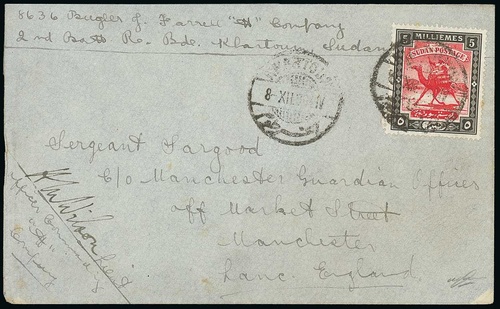 8636 Bugler J. Farrell "H" Company
2nd Batt Re. Bde. Khartoum Sudan
5 MILLIEMES 5
SUDAN POSTAGE
8-XII
Sergeant Sargood
C/o Manchester Guardian Offices
off Market Street
Manchester
Lanc. England
Wilson Lieut
Officer Commanding
"H"
Company